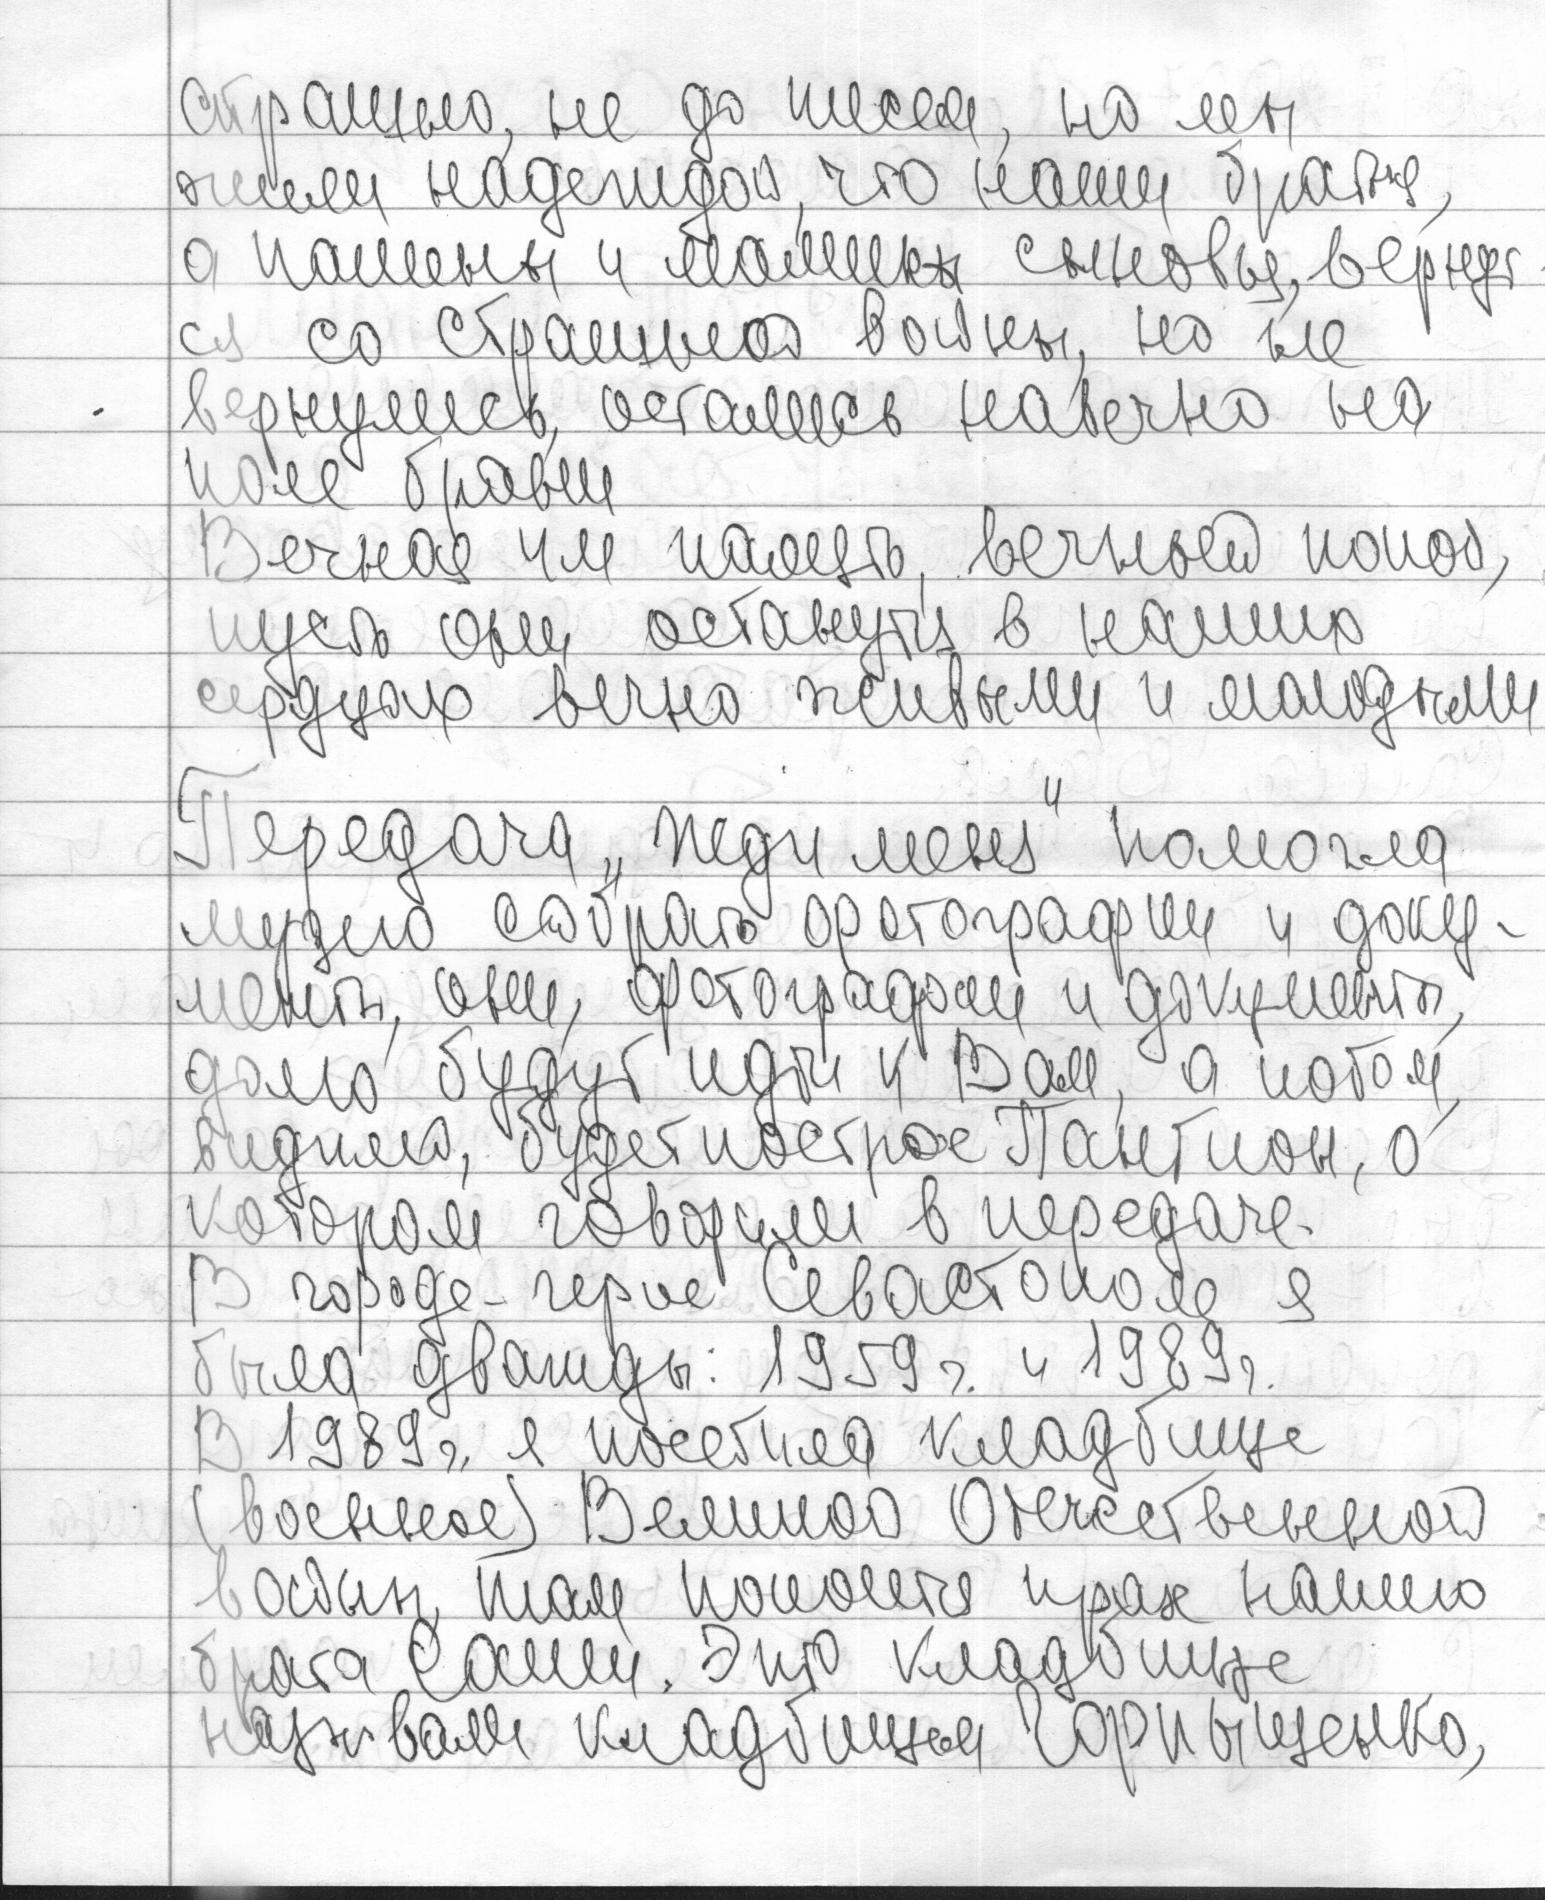 страшно, не до писем, но мы
жили надеждой, что наши братья,
а папины и мамины сыновья, вернут-
ся со страшной войны, но не
вернулись, остались навечно на
поле брани
Вечная им память, вечный покой,
пусть они останутся в наших
сердцах вечно живыми и молодыми
Передача „Жди меня" помогла
музею собрать фотографии и доку-
менты, они, фотографии и документы,
долго будут идти к Вам, а потом,
видимо, будет построе Пантион, о
котором говорили в передаче.
В городе-герое Севастополе я
была дважды: 1959 г. и 1989 г.
В 1989 г. я посетила кладбище
(военное) Великой Отечественной
войны, там покоится прах нашего
брата Саши. Это кладбище
называли кладбищем Горпыщенко,